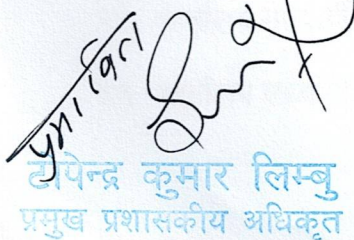 प्रमाणित
टोपेन्द्र कुमार लिम्बु
प्रमुख प्रशासकीय अधिकृत